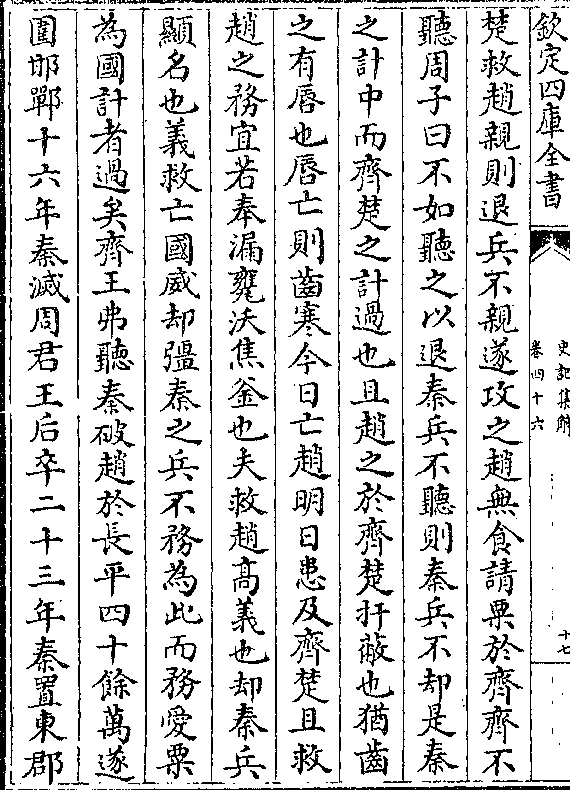 欽定四庫全書
史記集解
卷四十六
十七
楚救趙親則退兵不親遂攻之趙無食請粟於齊齊不
聽周子曰不如聽之以退秦兵不聽則秦兵不却是秦
之計中而齊楚之計過也且趙之於齊楚扞蔽也猶齒
之有唇也唇亡則齒寒今日亡趙明日患及齊楚且救
趙之務宜若奉漏甕沃焦釜也夫救趙髙義也却秦兵
顯名也義救亡國威却彊秦之兵不務為此而務愛粟
為國計者過矣齊王弗聽秦破趙於長平四十餘萬遂
圍邯鄲十六年秦滅周君王后卒二十三年秦置東郡